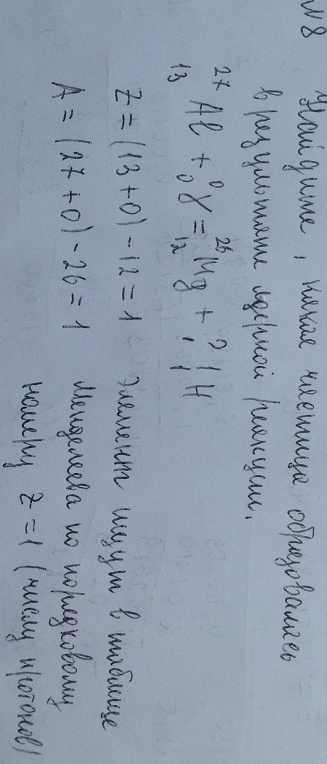 № 8 Найдите, какая частица образовалась
в результате ядерной реакции.
²⁷₁₃Al + ⁰₀γ = ²⁶₁₂Mg + ?¹₁H
Z = (13+0) - 12 = 1 Элемент ищут в таблице
A = (27+0) - 26 = 1 Менделеева по порядковому
номеру Z = 1 (числу протонов)